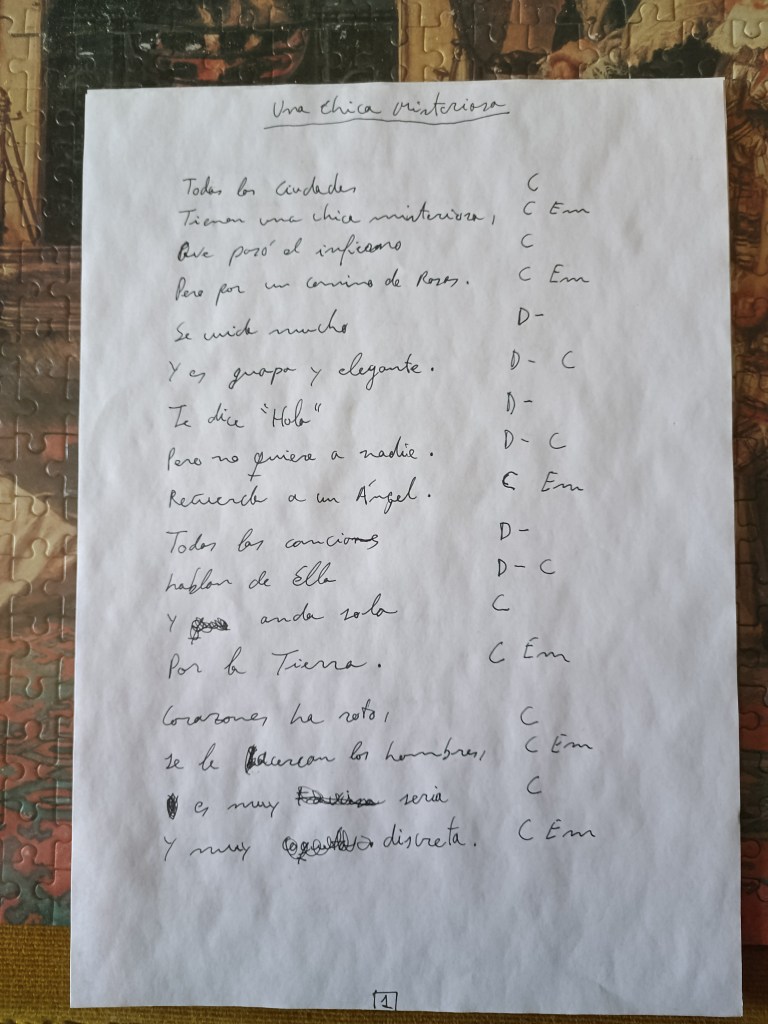 Una chica misteriosa
Todas las ciudades C
Tienen una chica misteriosa, C Em
Que pasó el infierno C
Pero por un camino de Rosas. C Em
Se cuida mucho D-
Y es guapa y elegante. D- C
Te dice "Hola" D-
Pero no quiere a nadie. D- C
Recuerda a un Ángel. C Em
Todas las canciones D-
hablan de Ella D- C
Y anda sola C
Por la Tierra. C Em
Corazones ha roto, C
se le acercan los hombres, C Em
es muy seria C
Y muy discreta. C Em
1